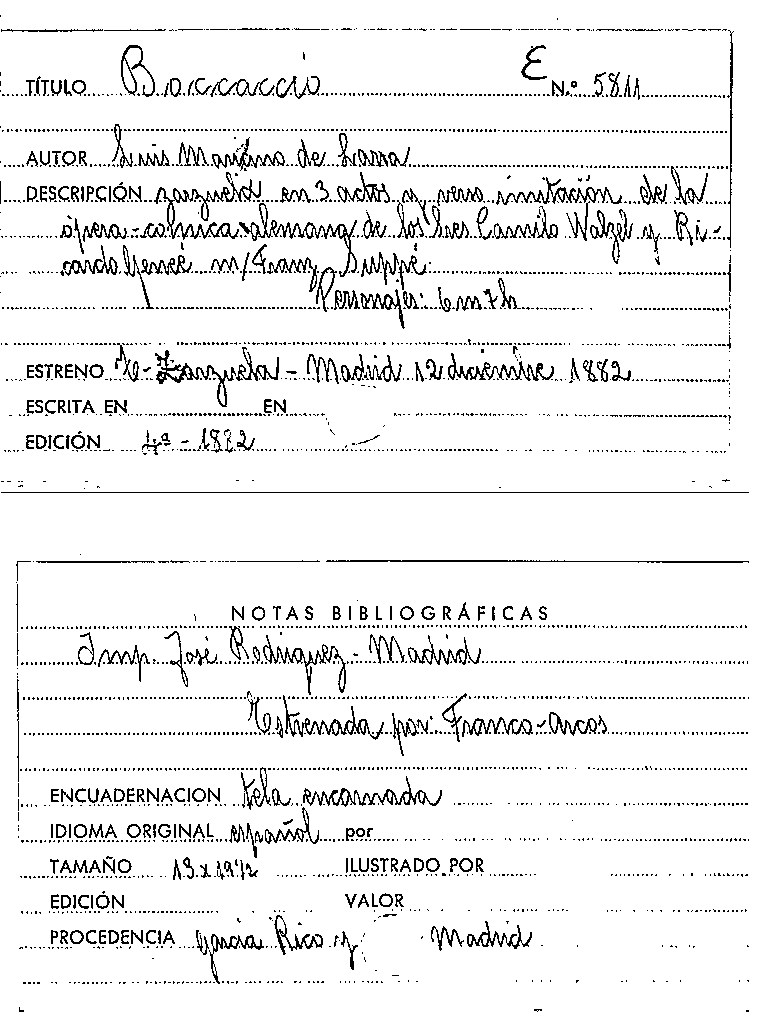 TÍTULO Boccaccio E N.º 5811
AUTOR Luis Mariano de Larra
DESCRIPCIÓN zarzuela en 3 actos y verso imitación de la
ópera-cómica alemana de los Sres Camilo Walzel y Ri-
cardo Genée m/ Franz Suppé.
Personajes: 6m 7h
ESTRENO Zarzuela - Madrid 12 diciembre 1882
ESCRITA EN EN
EDICIÓN 4ª - 1882
NOTAS BIBLIOGRÁFICAS
Imp. José Rodriguez - Madrid
Estrenada por: Franco-Arcos
ENCUADERNACION tela encarnada
IDIOMA ORIGINAL español por
TAMAÑO 13 x 19½ ILUSTRADO POR
EDICIÓN VALOR
PROCEDENCIA García Rico y Madrid